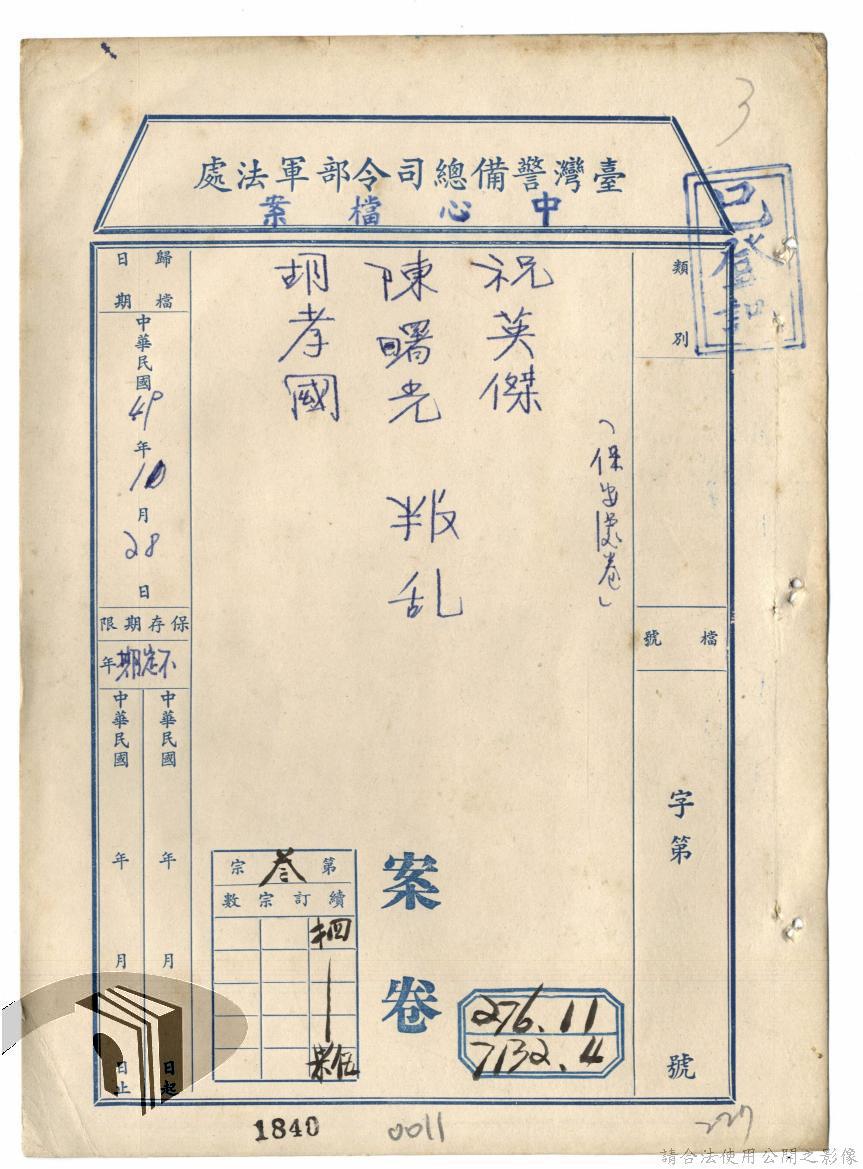 3
臺灣警備總司令部軍法處
中心檔案
已登記
類別
檔號
字第
號
(保安處卷)
祝英傑
陳曙光 叛乱
胡孝國
案卷
276.11
7132.4
第叁宗
續訂宗數
歸檔日期
中華民國49年10月28日
保存期限
不定期年
中華民國 年 月 日起
中華民國 年 月 日止
1840
0011
227
請合法使用公開之影像